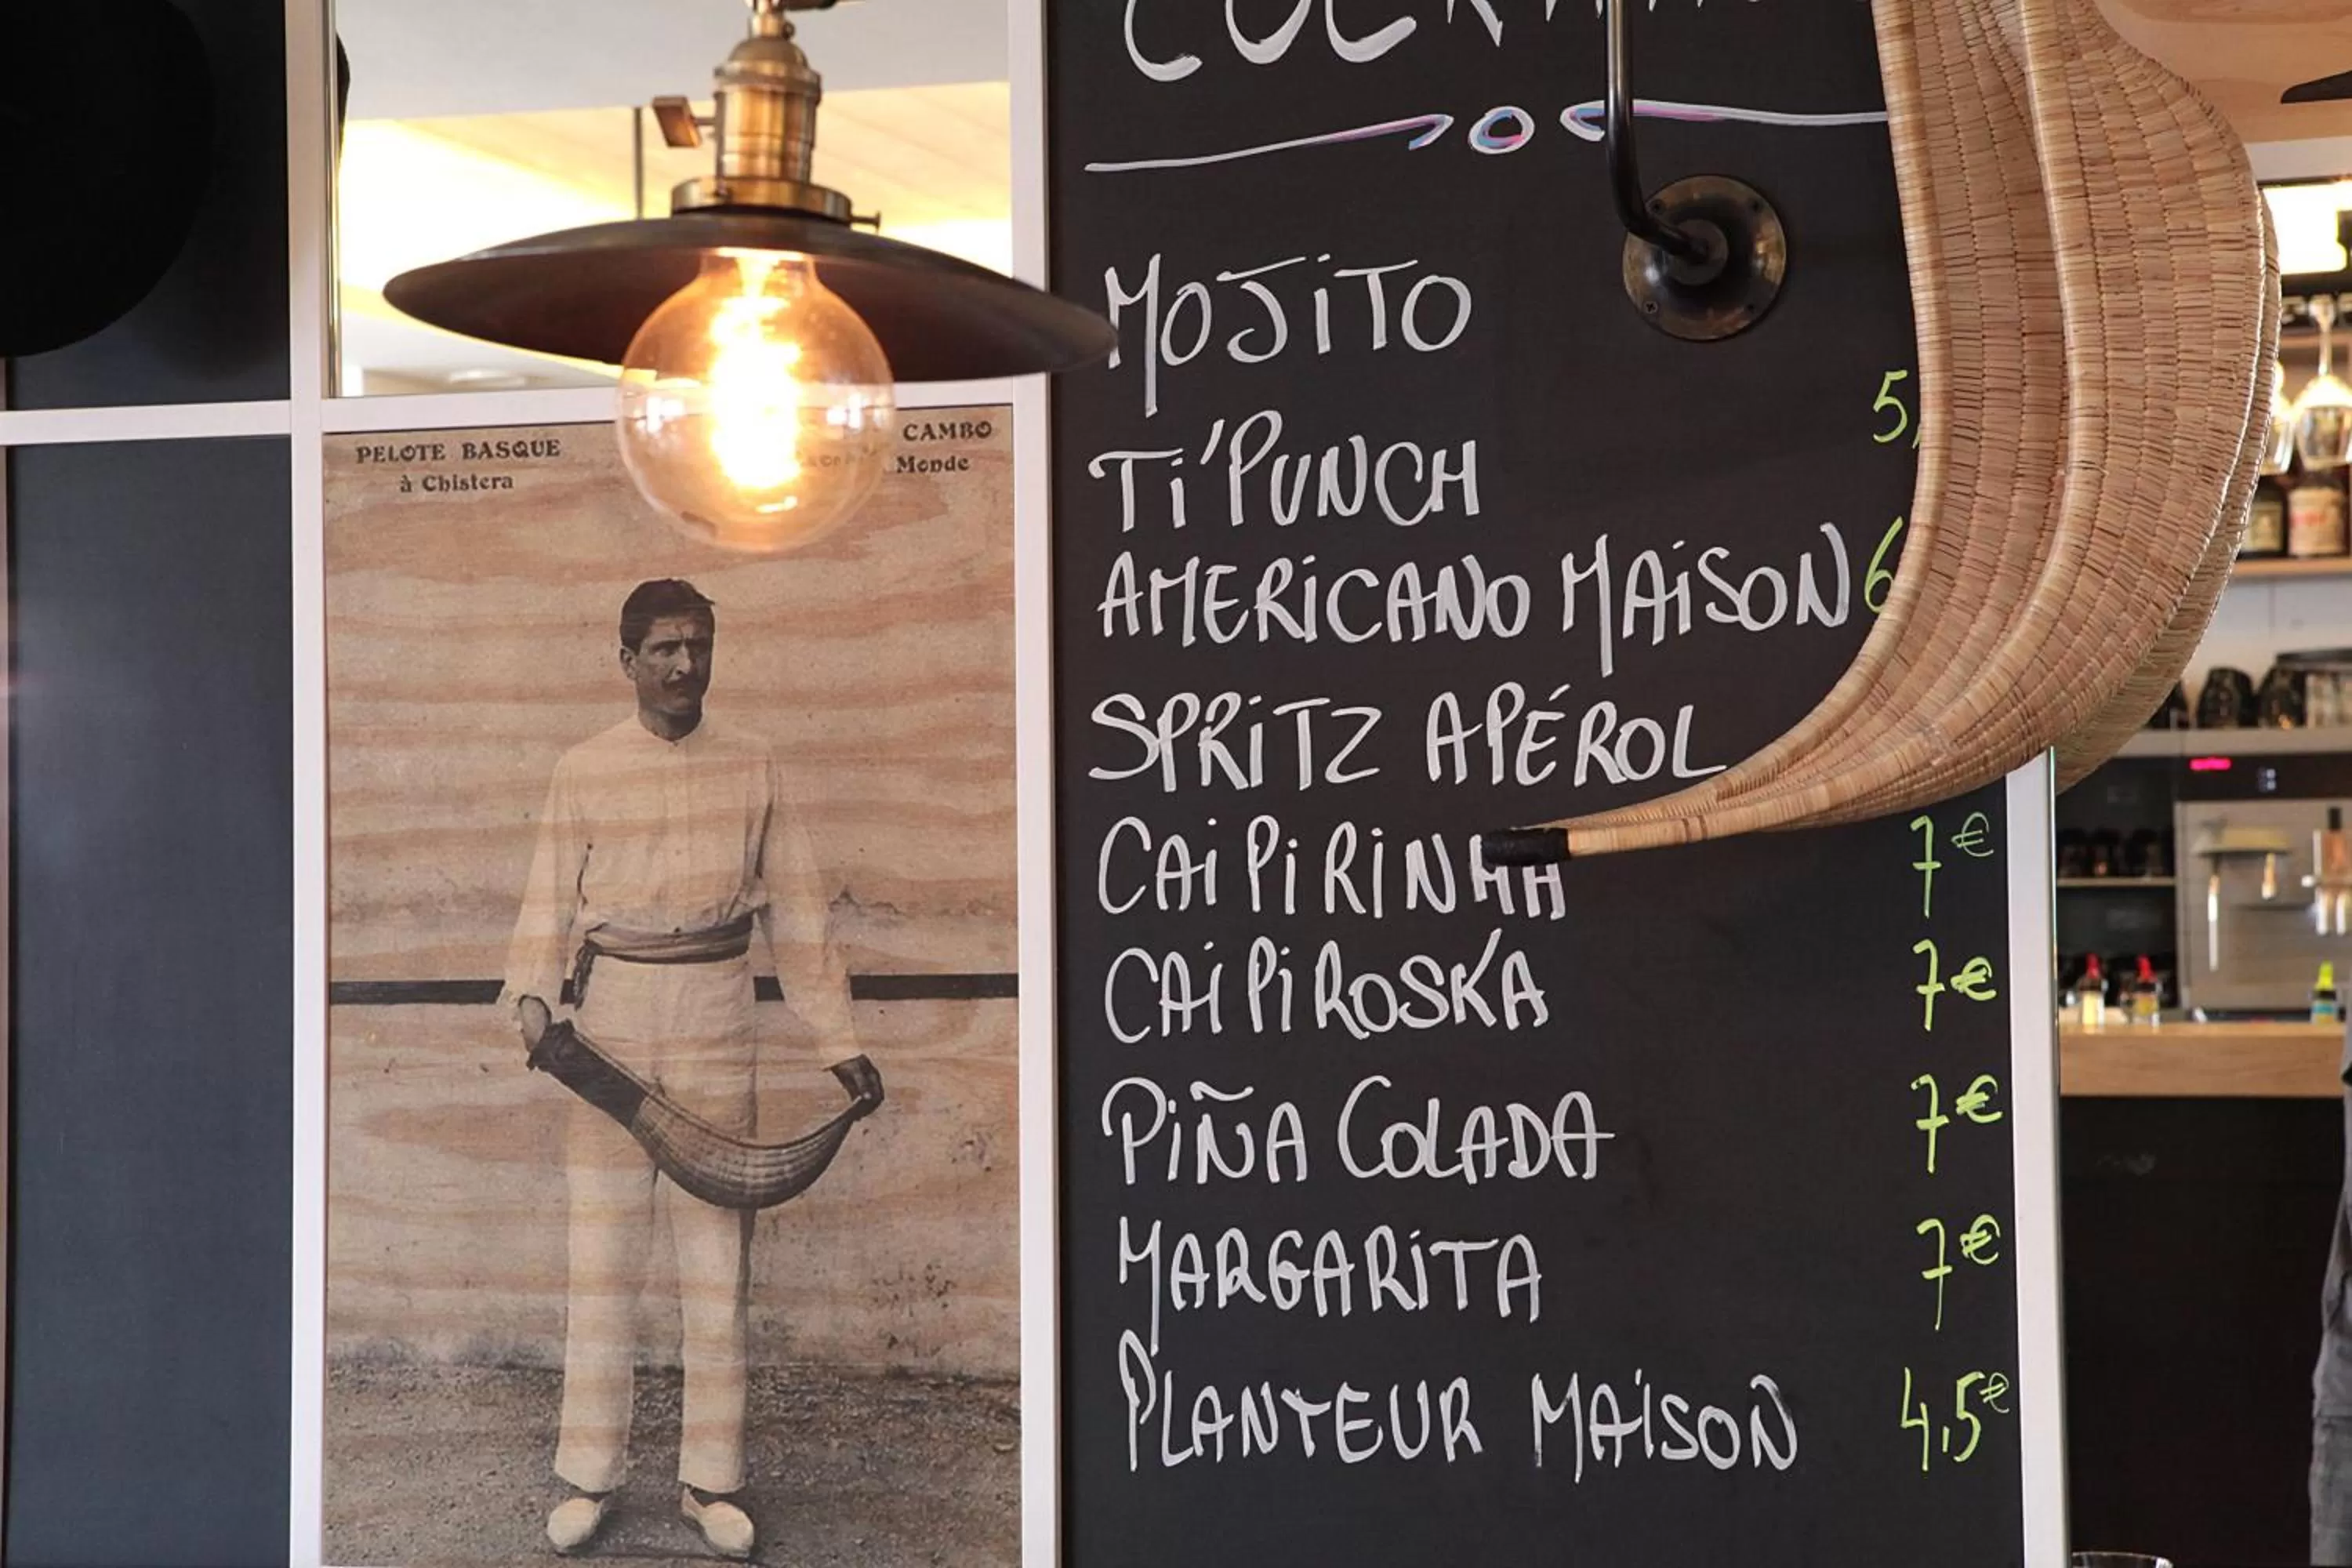 PELOTE BASQUE
à Chistera
CAMBO
Monde
MOJiTO
Ti'PUNCH 5,
AMERiCANO MAiSON 6
SPRiTZ APÉROL
CAiPiRiNHA 7€
CAiPiROSKA 7€
PiÑA COLADA 7€
MARGARiTA 7€
PLANTEUR MAiSON 4,5€